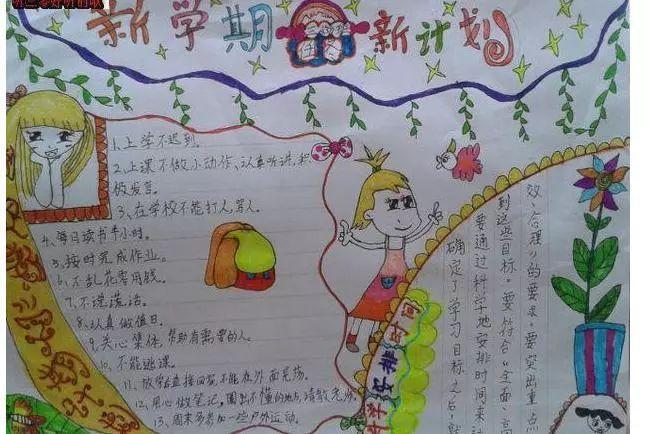 新学期 新计划
1、上学不迟到。
2、上课不做小动作、认真听讲,积
极发言。
3、在学校不能打人,骂人。
4、每日读书半小时。
5、按时完成作业。
6、不乱花零用钱。
7、不说谎话。
8、认真做值日。
9、关心集体,帮助有需要的人。
10、不能逃课。
11、放学后直接回家,不能在外面晃荡。
12、用心做笔记,圈出不懂的地方,请教老师。
13、周末多参加一些户外运动。
科学安排时间
确定了学习目标之后,就
要通过科学地安排时间来达
到这些目标。要符合“全面、高
效、合理”的要求。要突出重点